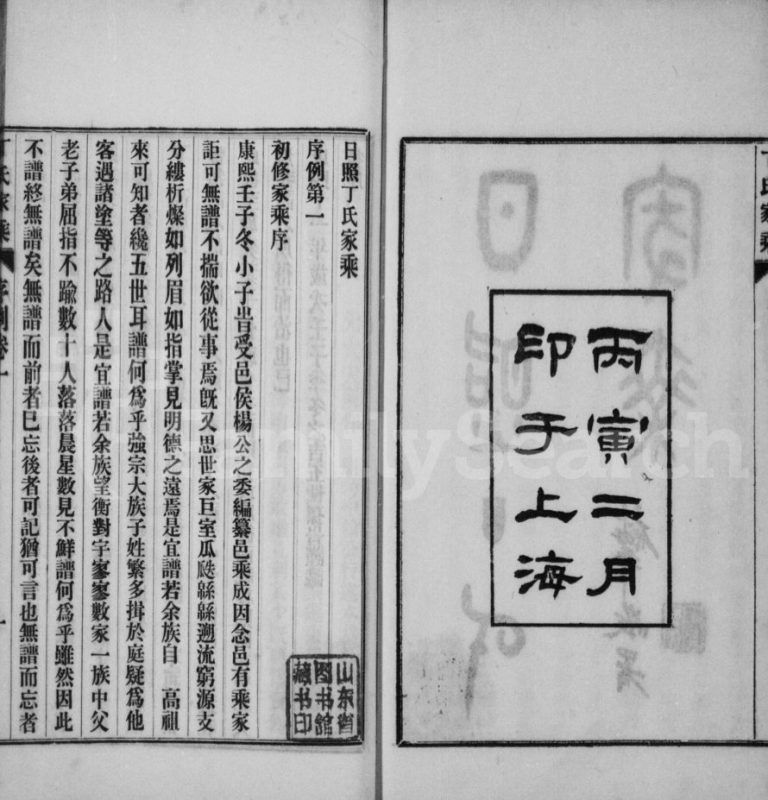 丙寅二月
印于上海
日照丁氏家乘
序例第一
初修家乘序
康熙壬子冬小子旹受邑侯楊公之委編纂邑乘成因念邑有乘家
詎可無譜不揣欲從事焉旣又思世家巨室瓜瓞緜緜遡流窮源支
分縷析燦如列眉如指掌見明德之遠焉是宜譜若余族自 高祖
來可知者纔五世耳譜何爲乎強宗大族子姓繁多揖於庭疑爲他
客遇諸塗等之路人是宜譜若余族望衡對宇寥寥數家一族中父
老子弟屈指不踰數十人落落晨星數見不鮮譜何爲乎雖然因此
不譜終無譜矣無譜而前者巳忘後者可記猶可言也無譜而忘者
丁氏家乘 序例卷一 一
山东省
图书馆
藏书印
FamilySearch